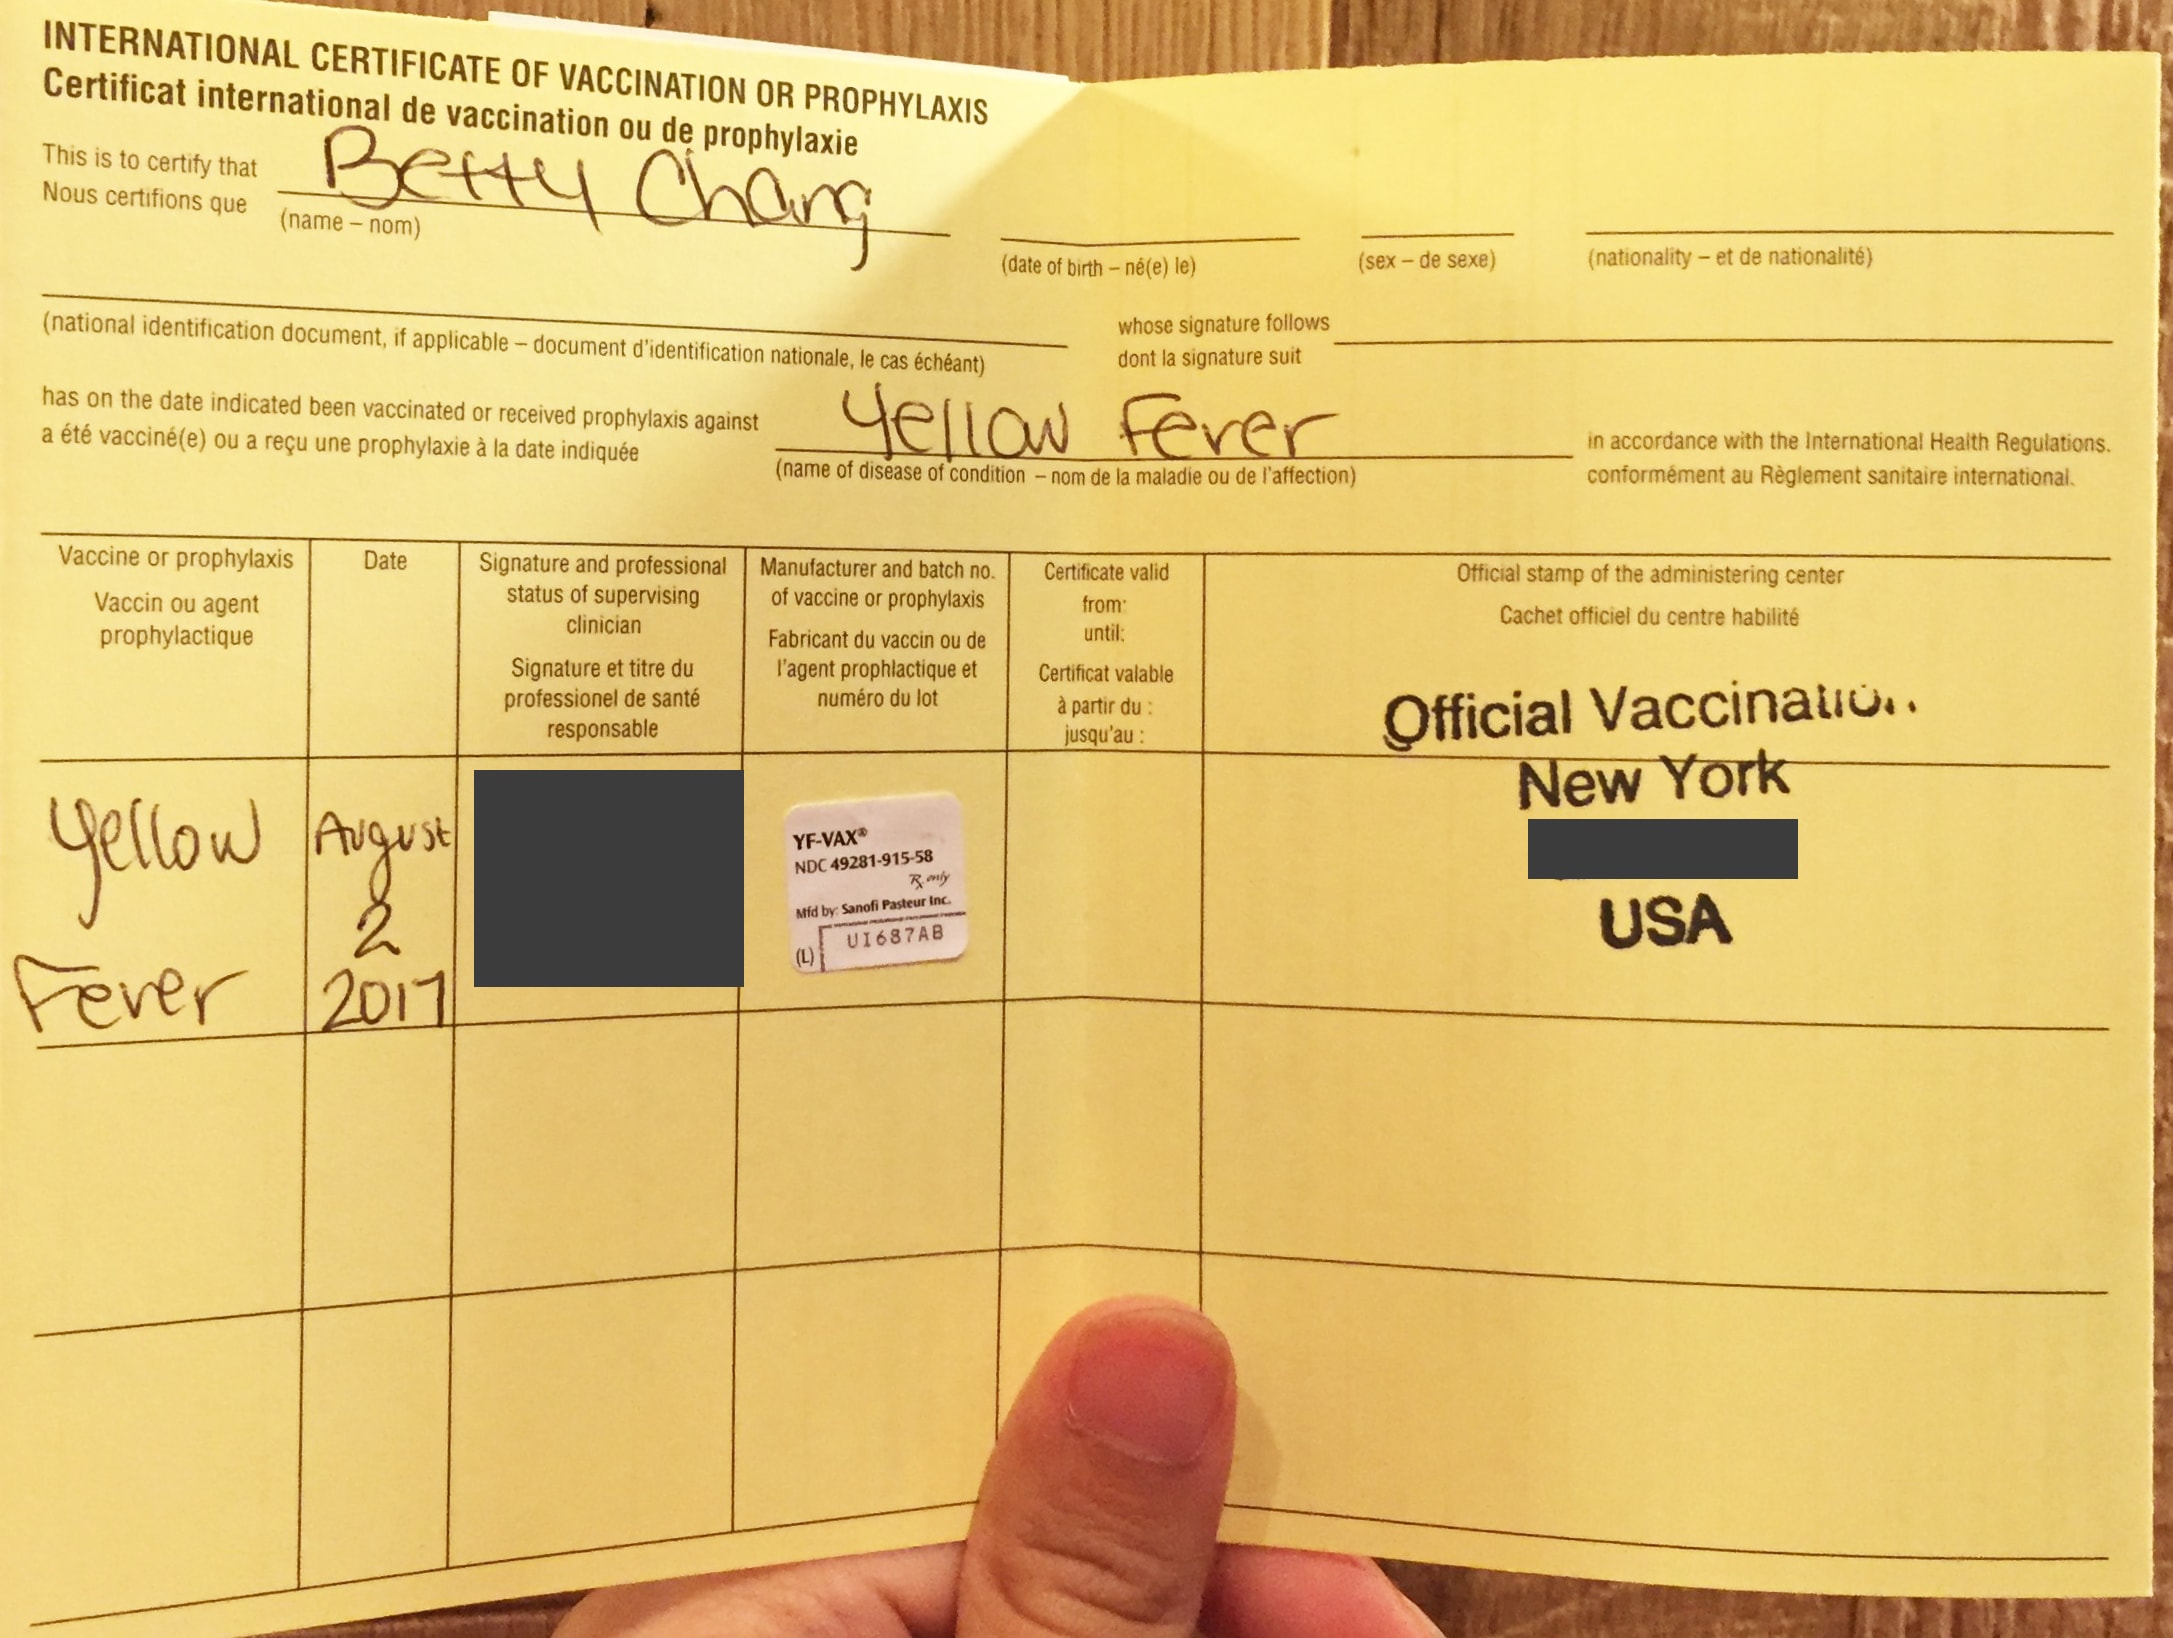 INTERNATIONAL CERTIFICATE OF VACCINATION OR PROPHYLAXIS
Certificat international de vaccination ou de prophylaxie
This is to certify that
Nous certifions que
Betty Chang
(name – nom)
(date of birth – né(e) le)
(sex – de sexe)
(nationality – et de nationalité)
(national identification document, if applicable – document d'identification nationale, le cas échéant)
whose signature follows
dont la signature suit
has on the date indicated been vaccinated or received prophylaxis against
a été vacciné(e) ou a reçu une prophylaxie à la date indiquée
Yellow Fever
(name of disease of condition – nom de la maladie ou de l'affection)
in accordance with the International Health Regulations.
conformément au Règlement sanitaire international.
Vaccine or prophylaxis
Vaccin ou agent
prophylactique
Date
Signature and professional
status of supervising
clinician
Signature et titre du
professionel de santé
responsable
Manufacturer and batch no.
of vaccine or prophylaxis
Fabricant du vaccin ou de
l'agent prophlactique et
numéro du lot
Certificate valid
from:
until:
Certificat valable
à partir du :
jusqu'au :
Official stamp of the administering center
Cachet officiel du centre habilité
Official Vaccination
New York
USA
Yellow
Fever
August
2
2017
YF-VAX®
NDC 49281-915-58
Rx only
Mfd by: Sanofi Pasteur Inc.
(L) UI687AB